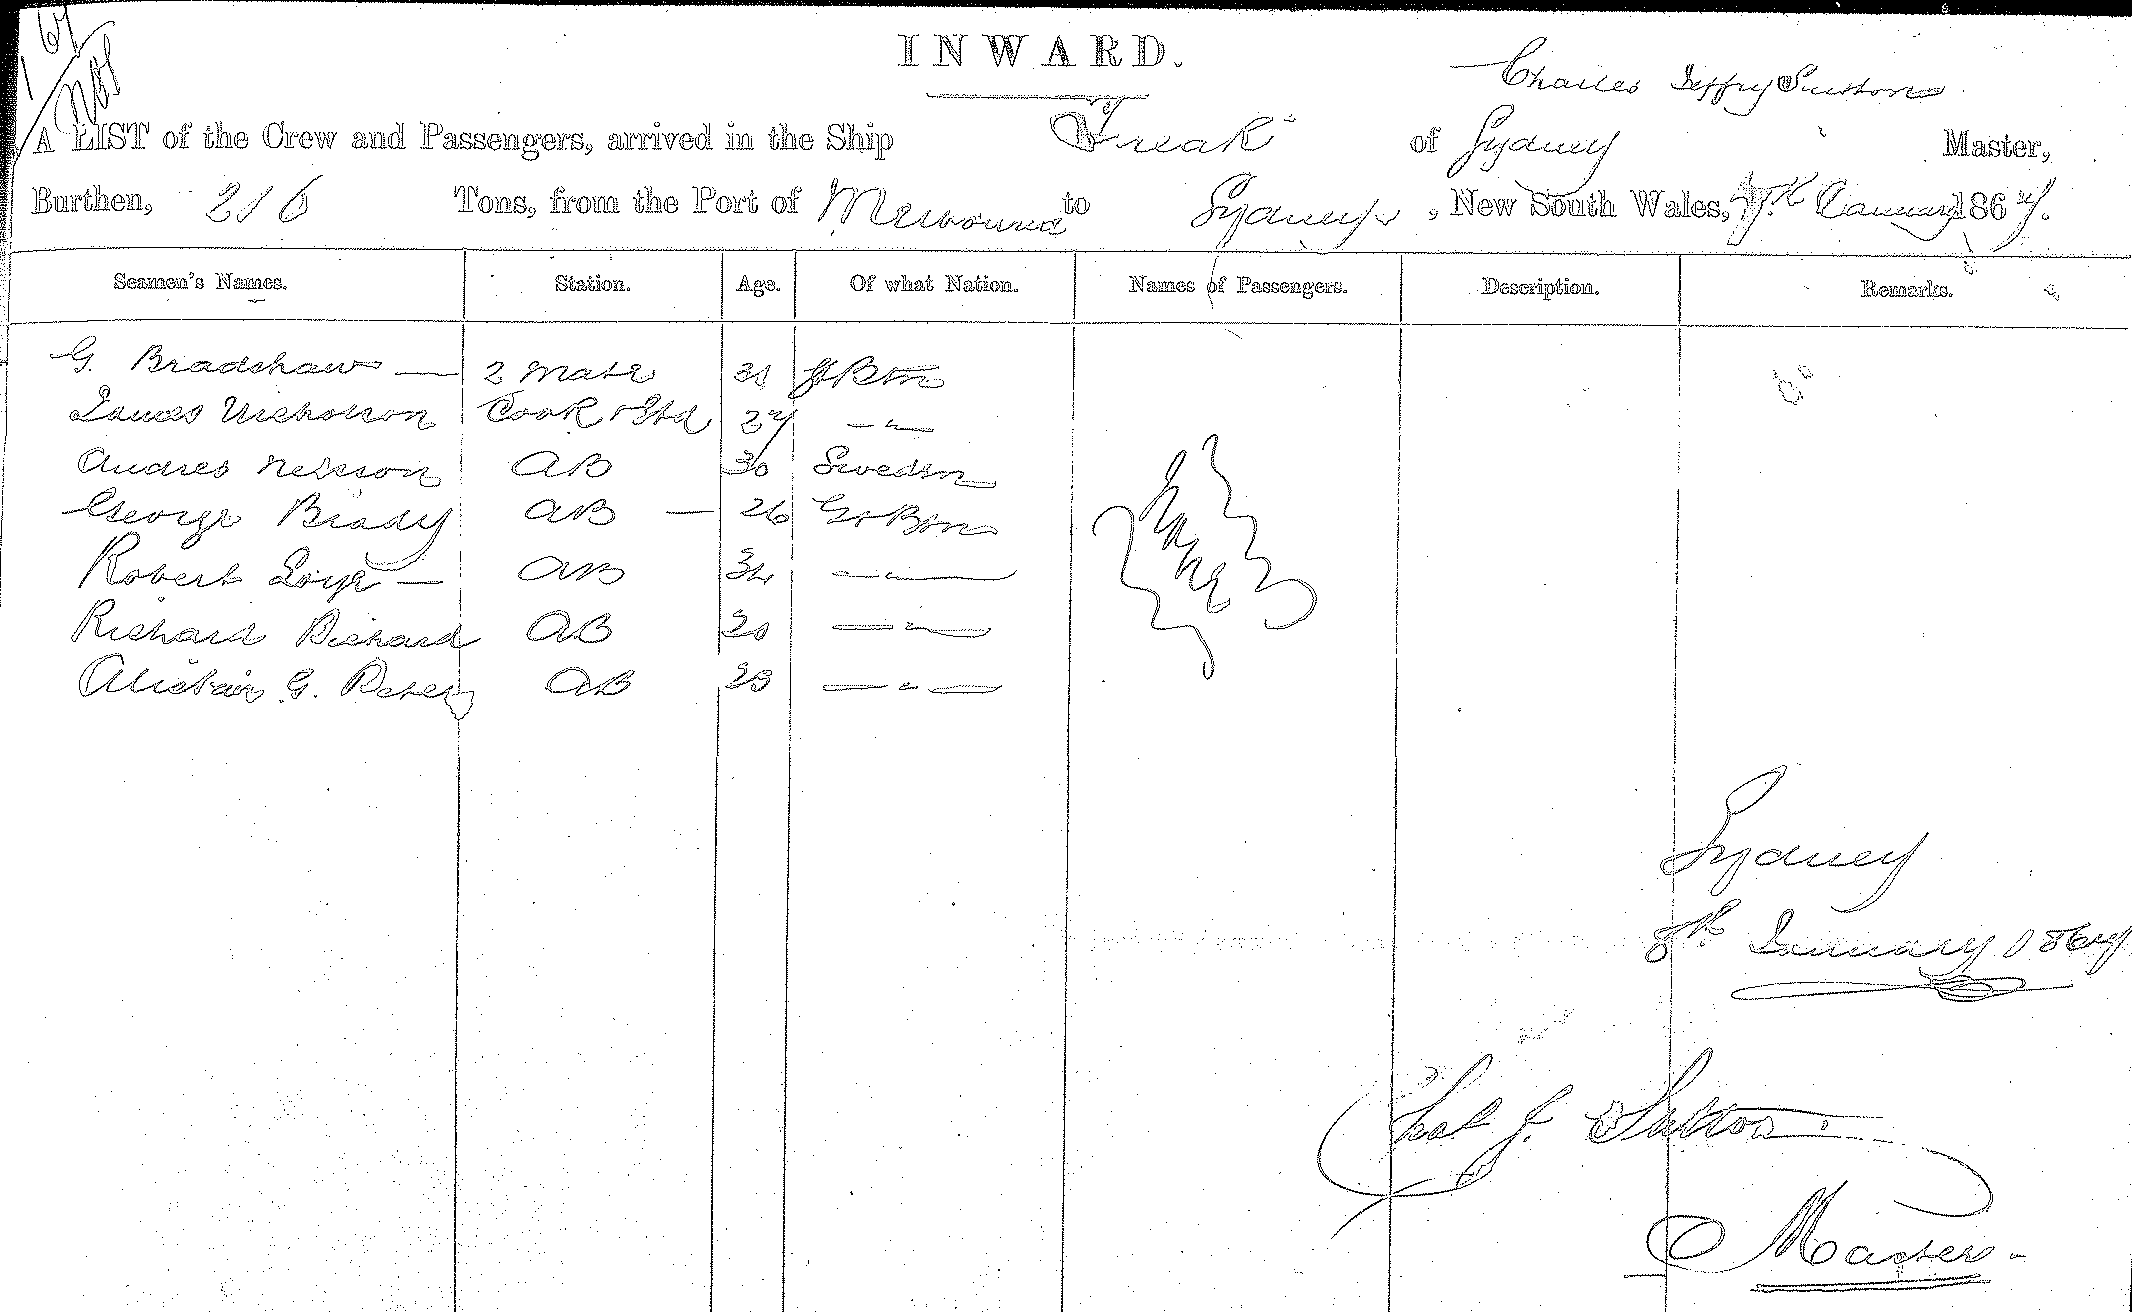 INWARD.
Charles Jeffry Sutton
A LIST of the Crew and Passengers, arrived in the Ship Freak of Sydney Master,
Burthen, 216 Tons, from the Port of Melbourne to Sydney, New South Wales, 7th January 1867.
Seamen's Names. Station. Age. Of what Nation. Names of Passengers. Description. Remarks.
G. Bradshaw — 2 Mate Gt Btn
James Nicholson Cook & Std 27 — " —
Andres Nelsson AB 30 Sweden
George Brady AB — 26 Gt Btn
Robert — AB 34 — " —
Richard Richard AB — " —
Alistair G. Peter AB 28 — " —
None
Sydney
8th January 1867
Chas J. Sutton
Master